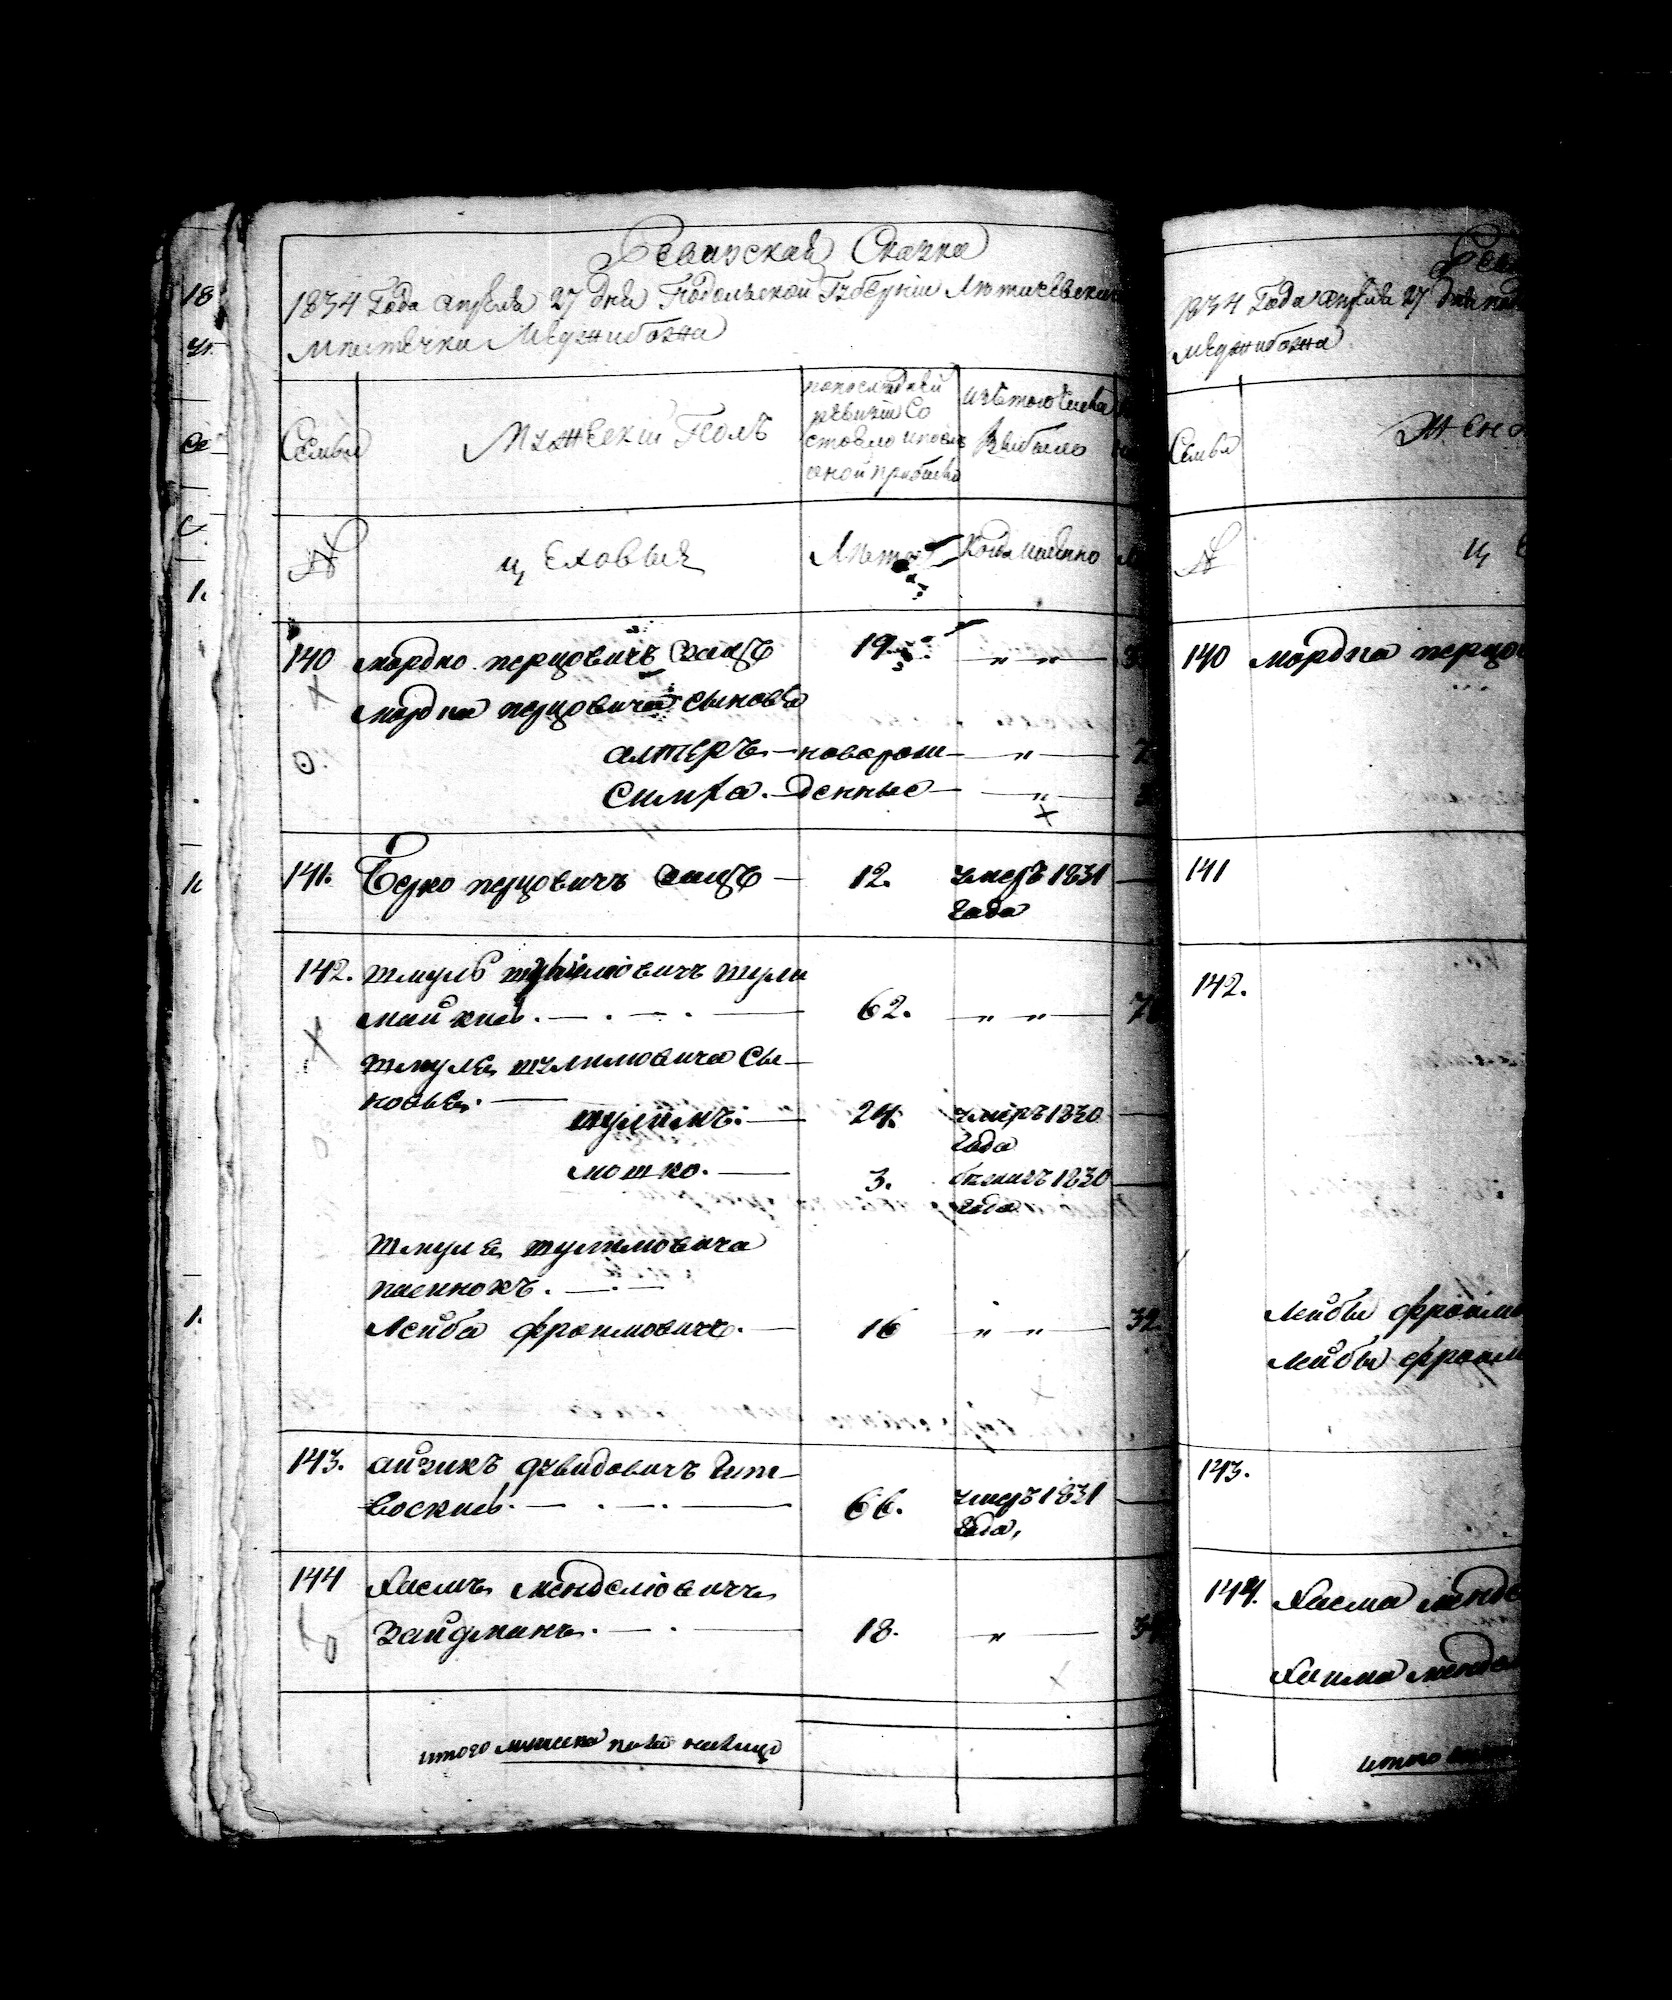 Ревизская Сказка
1834 Года апреля 27 дня Подольской Губерніи Летичевскаго
местечка Меджибожа
Семьи
Мужескій Полъ
попоследней
ревизіи Со
стояло ипосле
оной прибыло
изътогочисла
Выбыло
№
цеховые
Лета
Когда имянно
140 мордко перцовичъ 19 „ „
мордка перцовича сыновья
алтеръ новорож „
Симха денные „
141. Берко перцовичъ 12. умеръ 1831
года
142. шмуль шулимовичъ
62. „ „ 7
шмуля шулимовича сы
новья.
шулимъ. 24. умеръ 1830
года
мошко. 3. бежитъ 1830
года
шмуля шулимовича
пасинокъ.
лейба фроимовичъ. 16 „ „ 32
143. айзикъ дувидовичъ Лит
воскій. 66. умеръ 1831
года,
144 Хаемъ менделіовичъ
Зайдманъ. 18. „ 34
итого мужеска пола налицо
1834 Года апреля 27 дня под
меджибожа
Семьи
Женс
№
ц
140 мордка перцо
141
142.
лейбы фроимо
лейбы фроим
143.
144. Хаема менде
Хаима менде
итого
18
1.
1.
1.